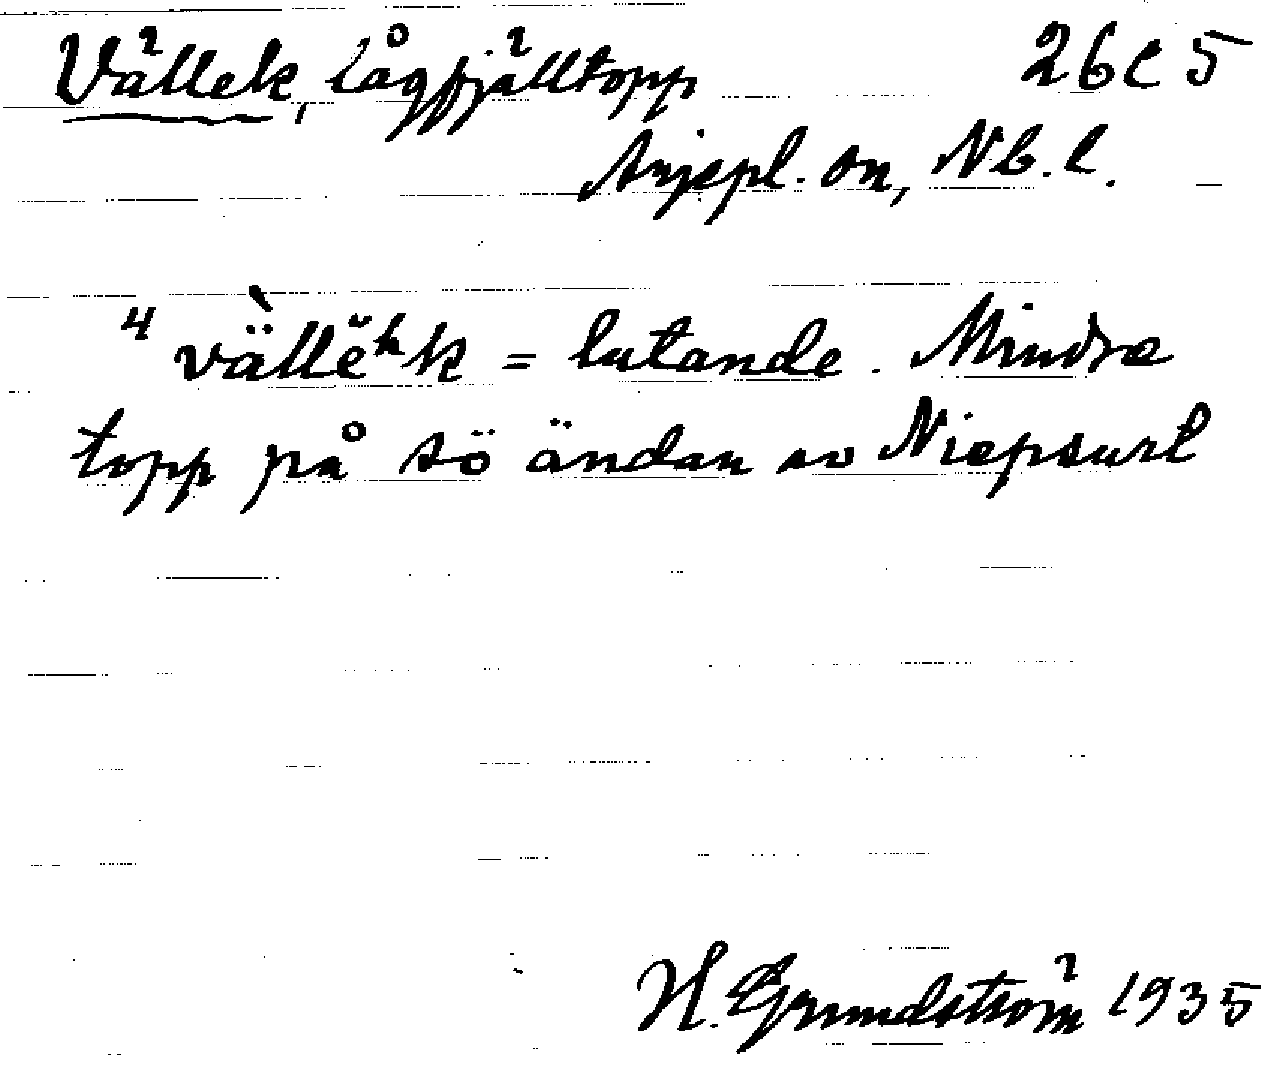 Vällek, lågfjälltopp 26C5
Arjepl. sn, Nb. l.
4 vä̀llĕʰk = lutande. Mindre
topp på sö ändan av Niepsurt
H. Grundström 1935